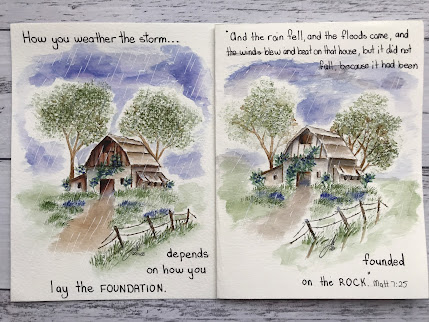 How you weather the storm...
depends
on how you
lay the FOUNDATION.
"And the rain fell, and the floods came, and
the winds blew and beat on that house, but it did not
fall, because it had been
founded
on the ROCK." Matt 7:25